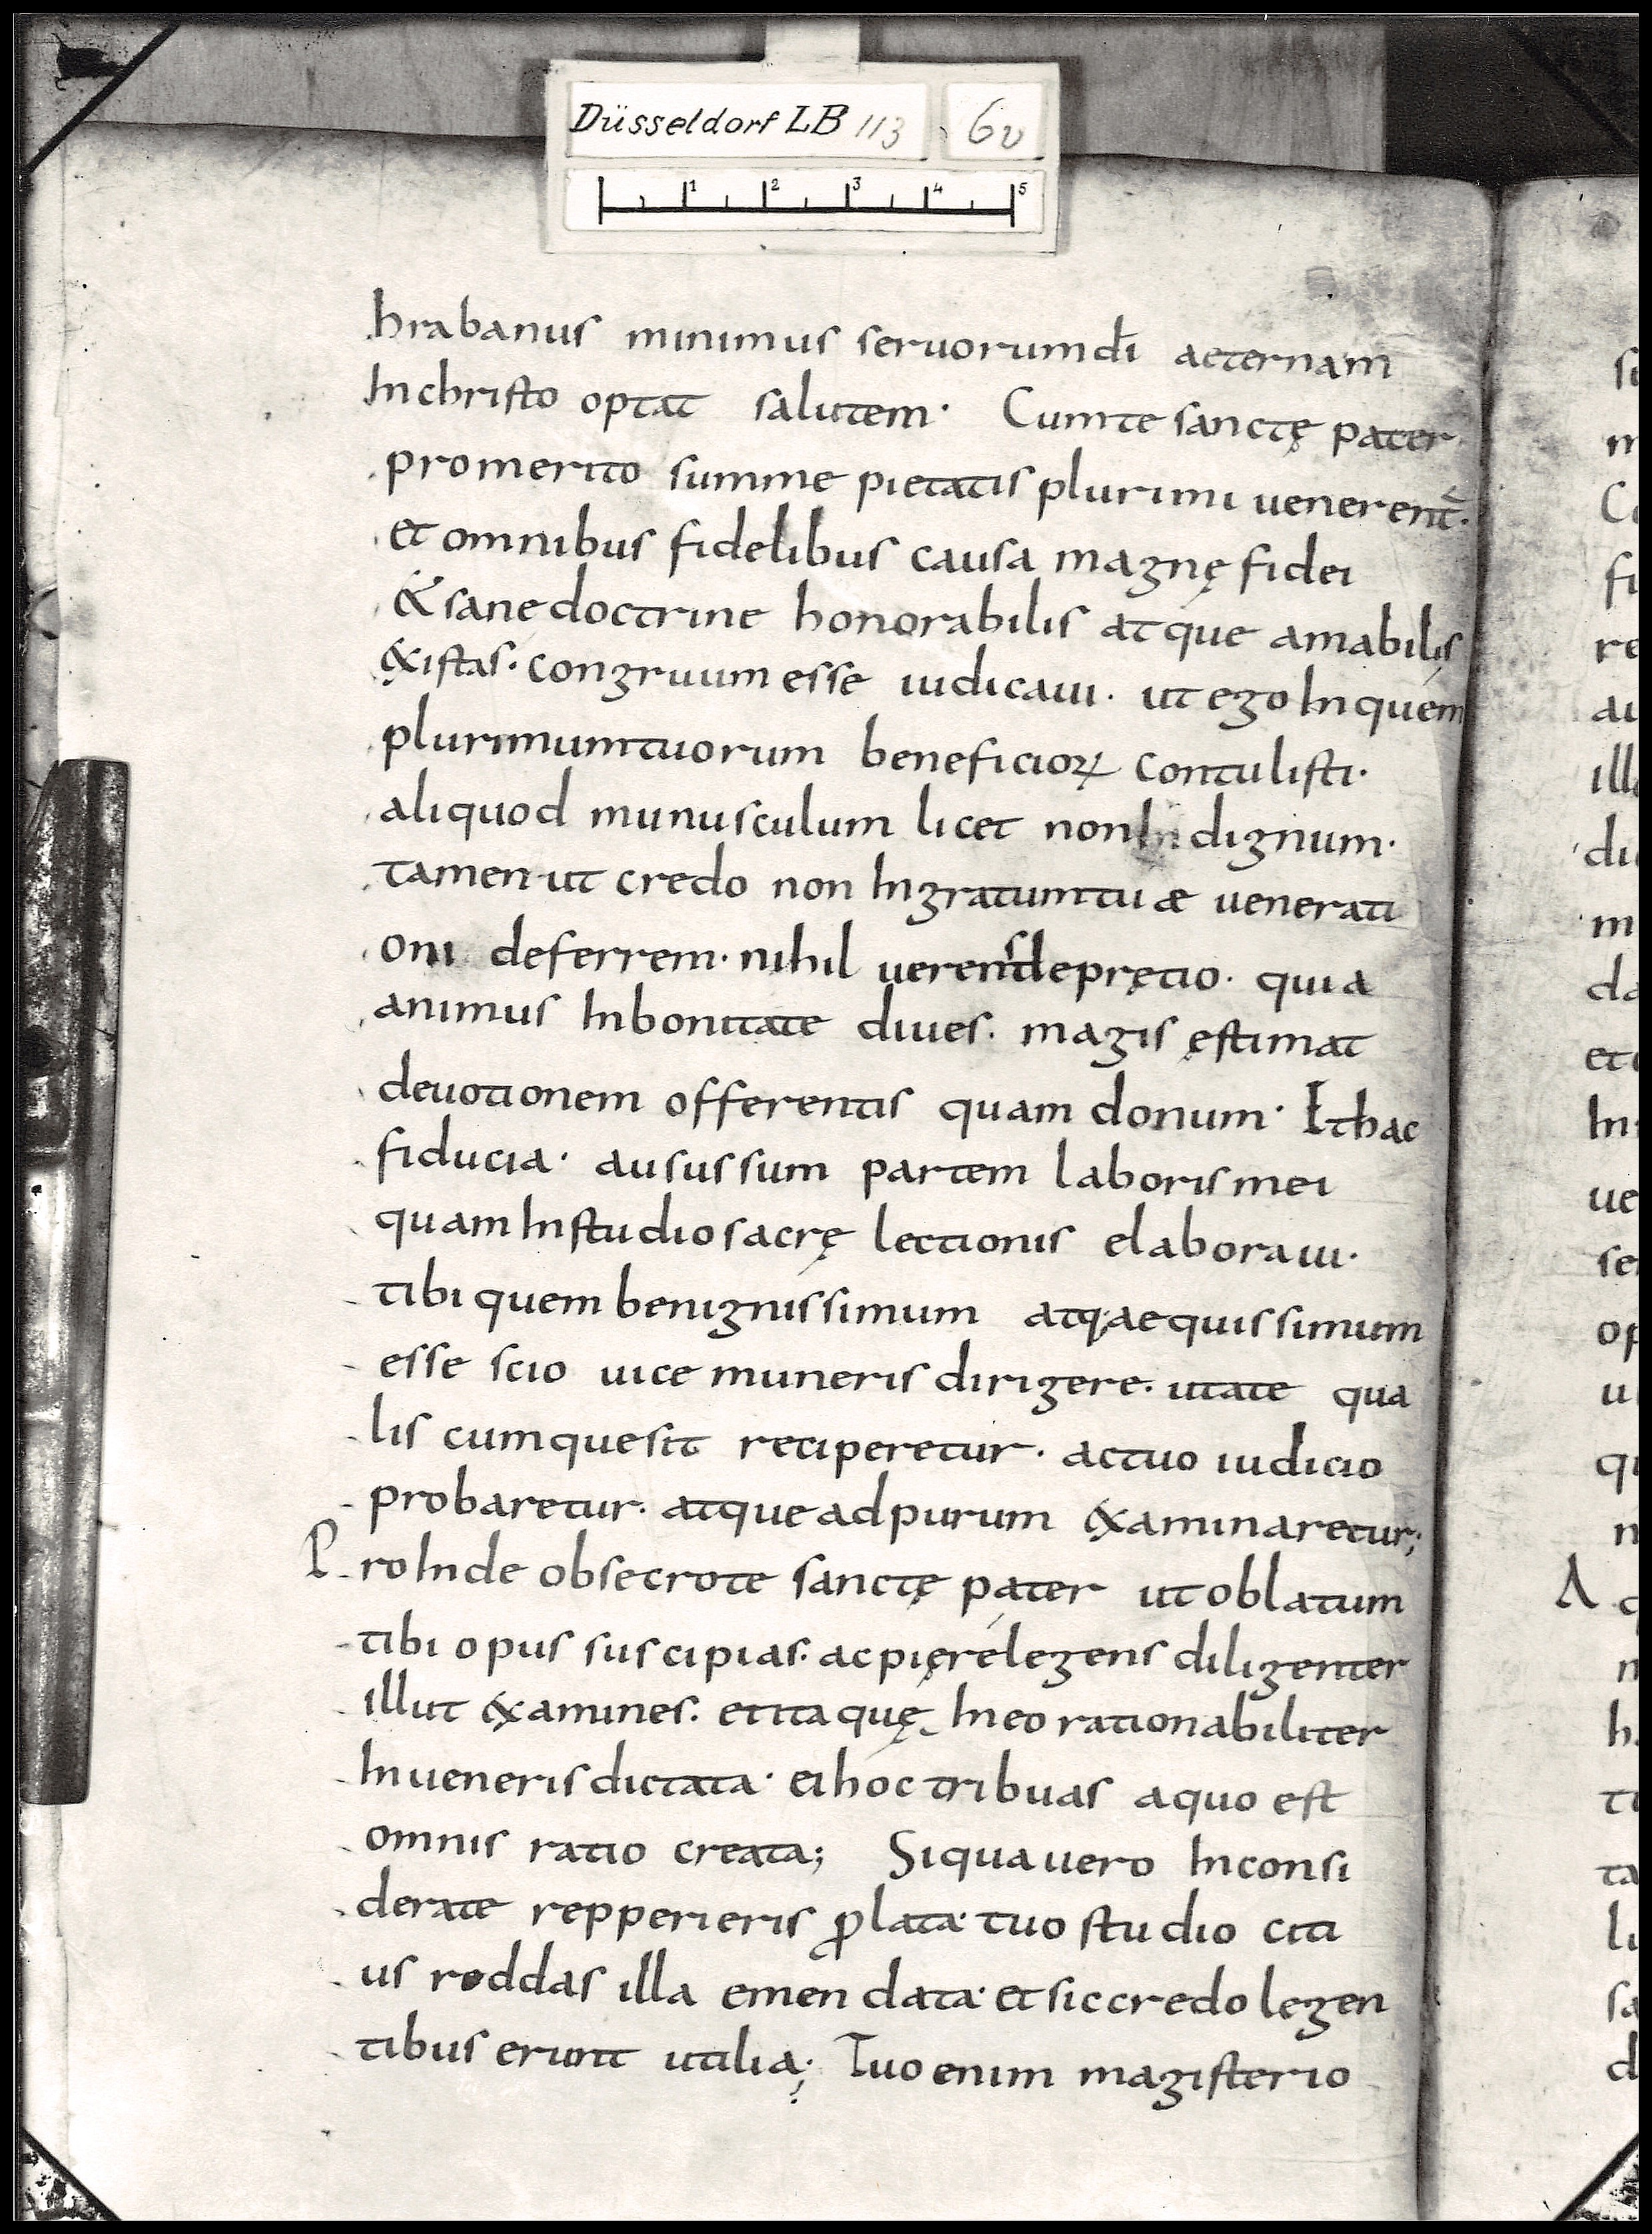 Düsseldorf LB 113 6v
1 2 3 4 5
hrabanus minimus seruorum dī aeternam
In christo optat salutem· Cum te sanctę pater
pro merito summe pietatis plurimi uenerent᷑·
et omnibus fidelibus causa magnę fidei
& sane doctrine honorabilis atque amabilis
ęxistas· congruum esse iudicaui· ut ego In quem
plurimum tuorum beneficioꝝ contulisti·
aliquod munusculum licet non In dignum·
tamen ut credo non Ingratum tuæ uenerati
oni deferrem· nihil uerens de prętio· quia
animus In bonitate diues· magis ęstimat
deuotionem offerentis quam donum· Et hac
fiducia· ausus sum partem laboris mei
quam In studio sacrę lectionis elaboraui·
tibi quem benignissimum atq; aequissimum
esse scio uice muneris dirigere· ut a te qua
lis cumque sit reciperetur· ac tuo iudicio
probaretur· atque ad purum &xaminaretur;
Pro Inde obsecro te sanctę pater ut oblatum
tibi opus suscipias· ac pię relegens diligenter
illut &xamines· et ita quę In eo rationabiliter
Inueneris dictata· ei hoc tribuas a quo est
omnis ratio creata; Si qua uero Inconsi
derate repperieris ꝓlata· tuo studio citi
us reddas illa emendata· et sic credo legen
tibus erunt utilia; Tuo enim magisterio